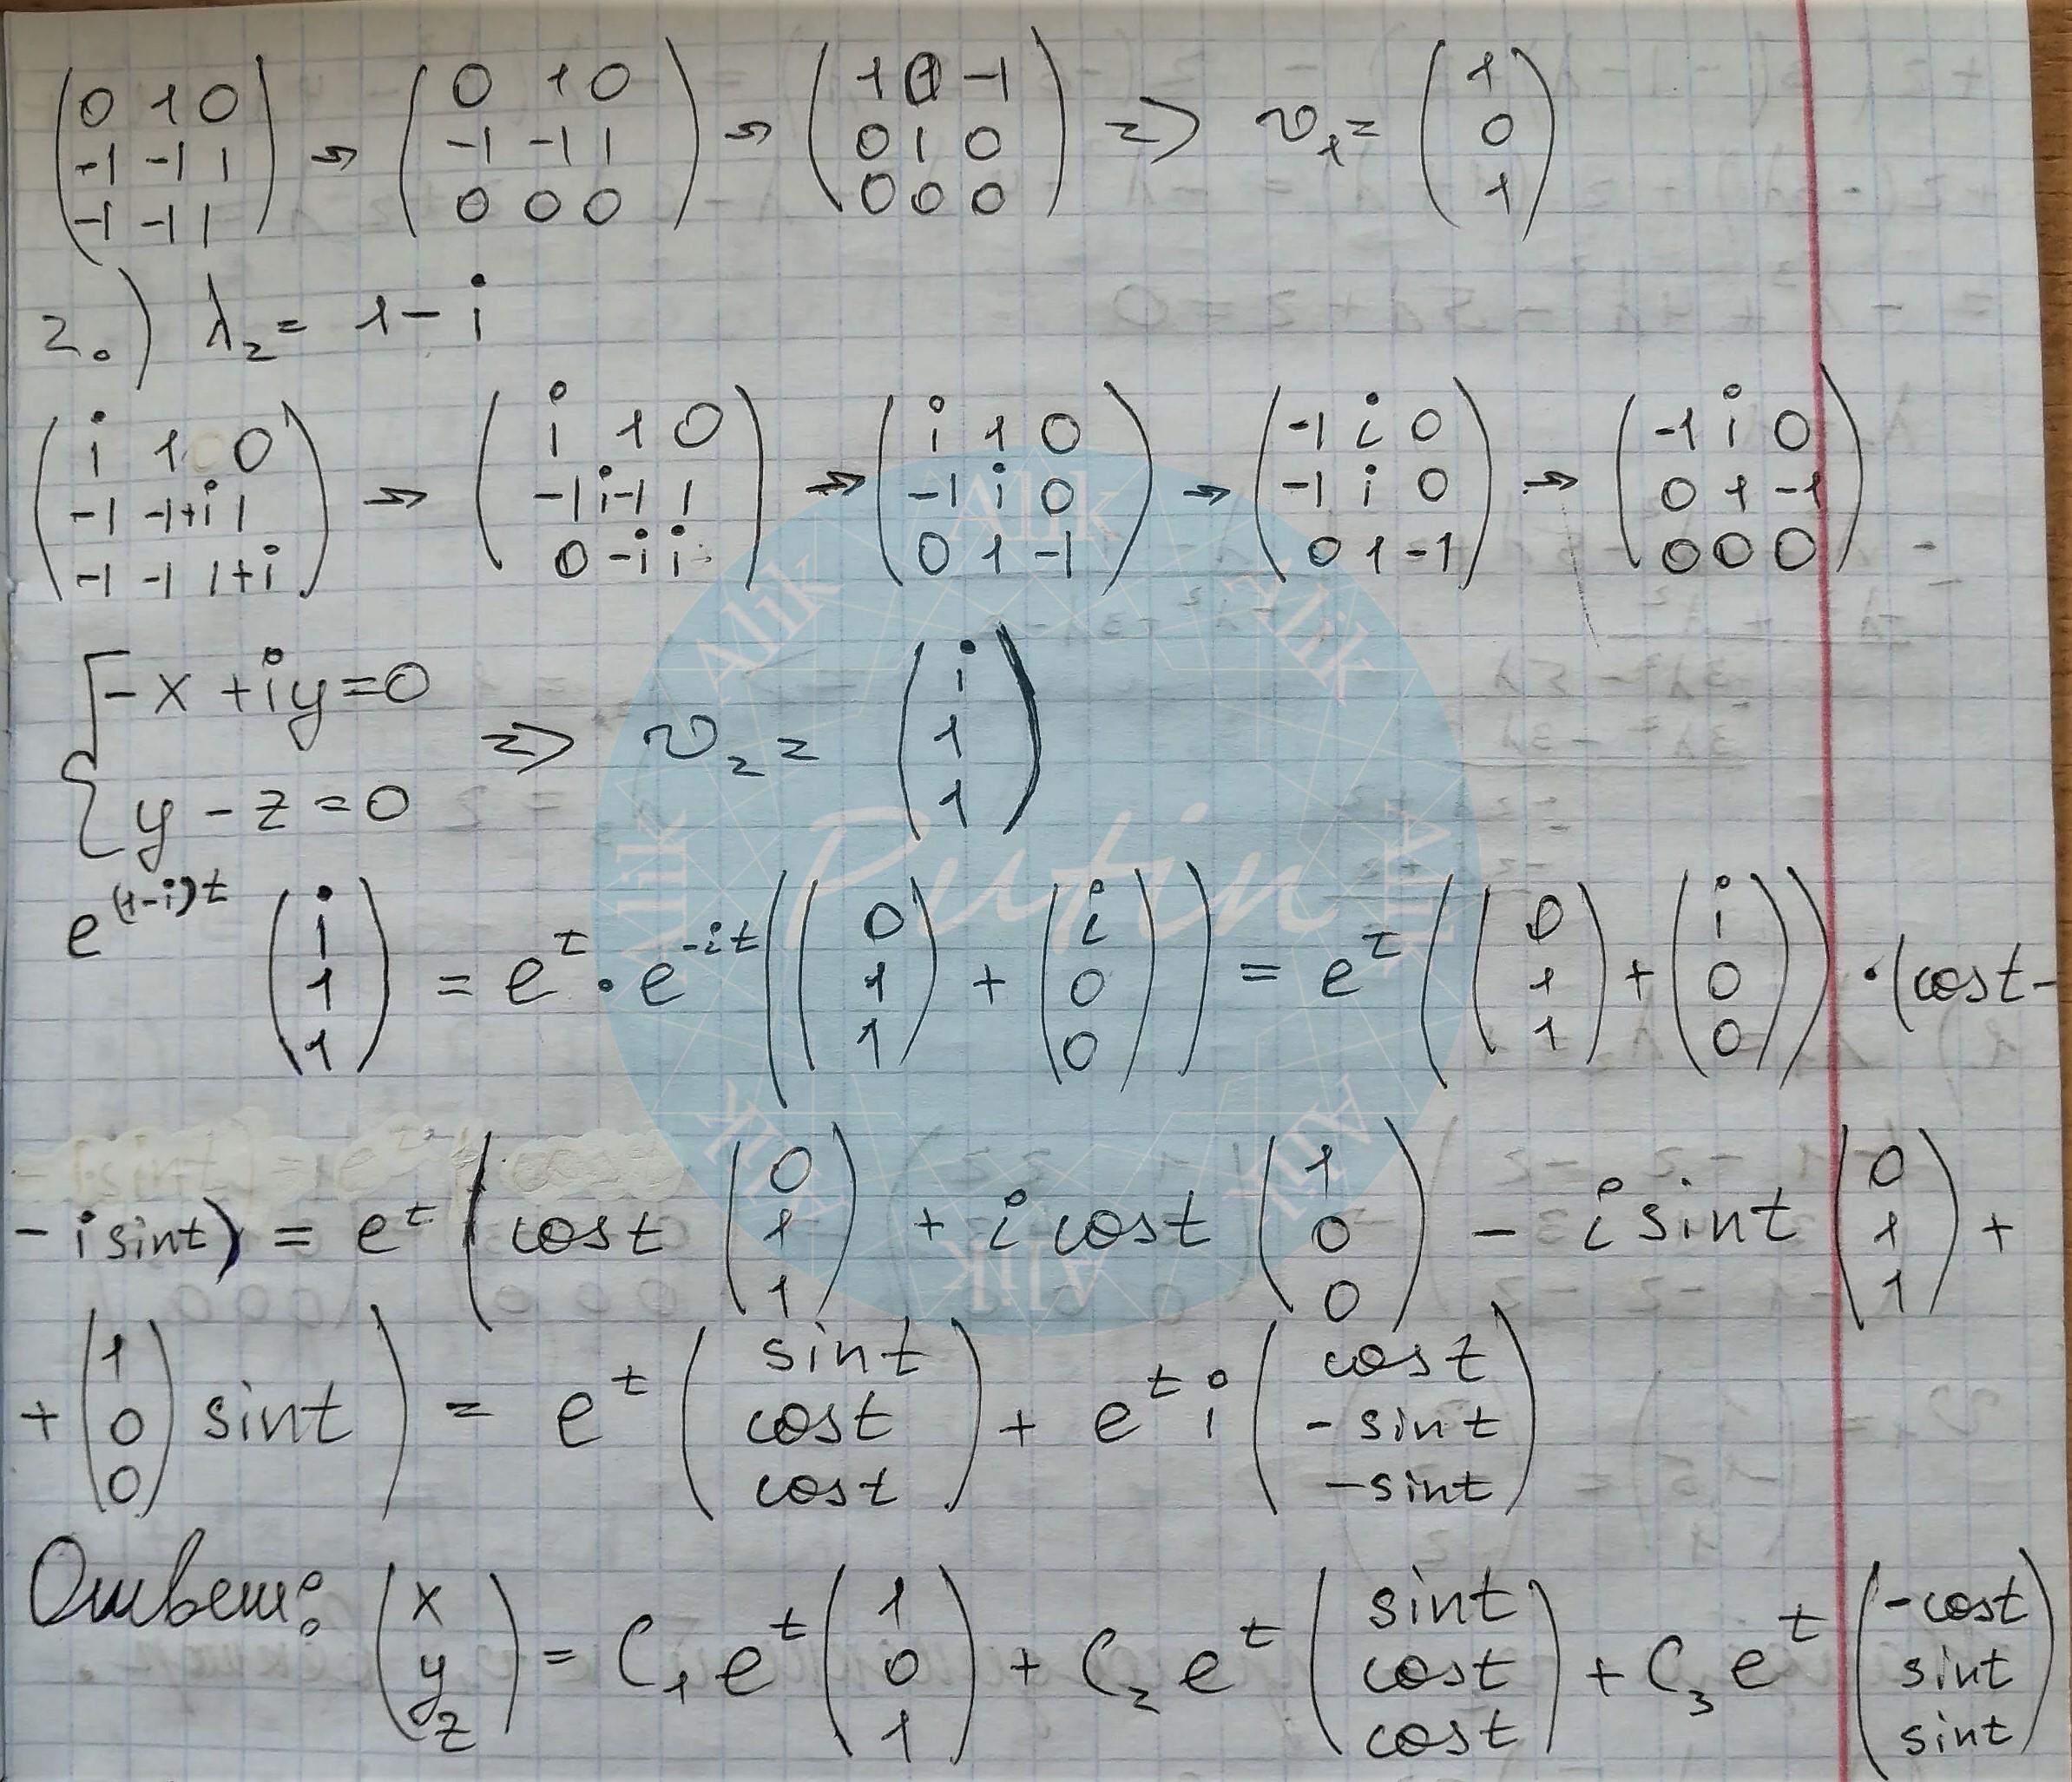 (0 1 0; -1 -1 1; -1 -1 1) → (0 1 0; -1 -1 1; 0 0 0) → (1 0 -1; 0 1 0; 0 0 0) => v₁ = (1; 0; 1)
2.) λ₂ = 1 - i
(i 1 0; -1 -1+i 1; -1 -1 1+i) → (i 1 0; -1 i-1 1; 0 -i i) → (i 1 0; -1 i 0; 0 1 -1) → (-1 i 0; -1 i 0; 0 1 -1) → (-1 i 0; 0 1 -1; 0 0 0)
{ -x + iy = 0
{ y - z = 0 => v₂ = (i; 1; 1)
e^(1-i)t (i; 1; 1) = e^t · e^-it ((0; 1; 1) + (i; 0; 0)) = e^t ((0; 1; 1) + (i; 0; 0)) · (cost -
- i sint) = e^t (cost (0; 1; 1) + i cost (1; 0; 0) - i sint (0; 1; 1) +
+ (1; 0; 0) sint) = e^t (sint; cost; cost) + e^t i (cost; -sint; -sint)
Ответ: (x; y; z) = C₁ e^t (1; 0; 1) + C₂ e^t (sint; cost; cost) + C₃ e^t (-cost; sint; sint)
Alik
Alik
Alik
Alik
Putin
Alik
Alik
Alik
Alik